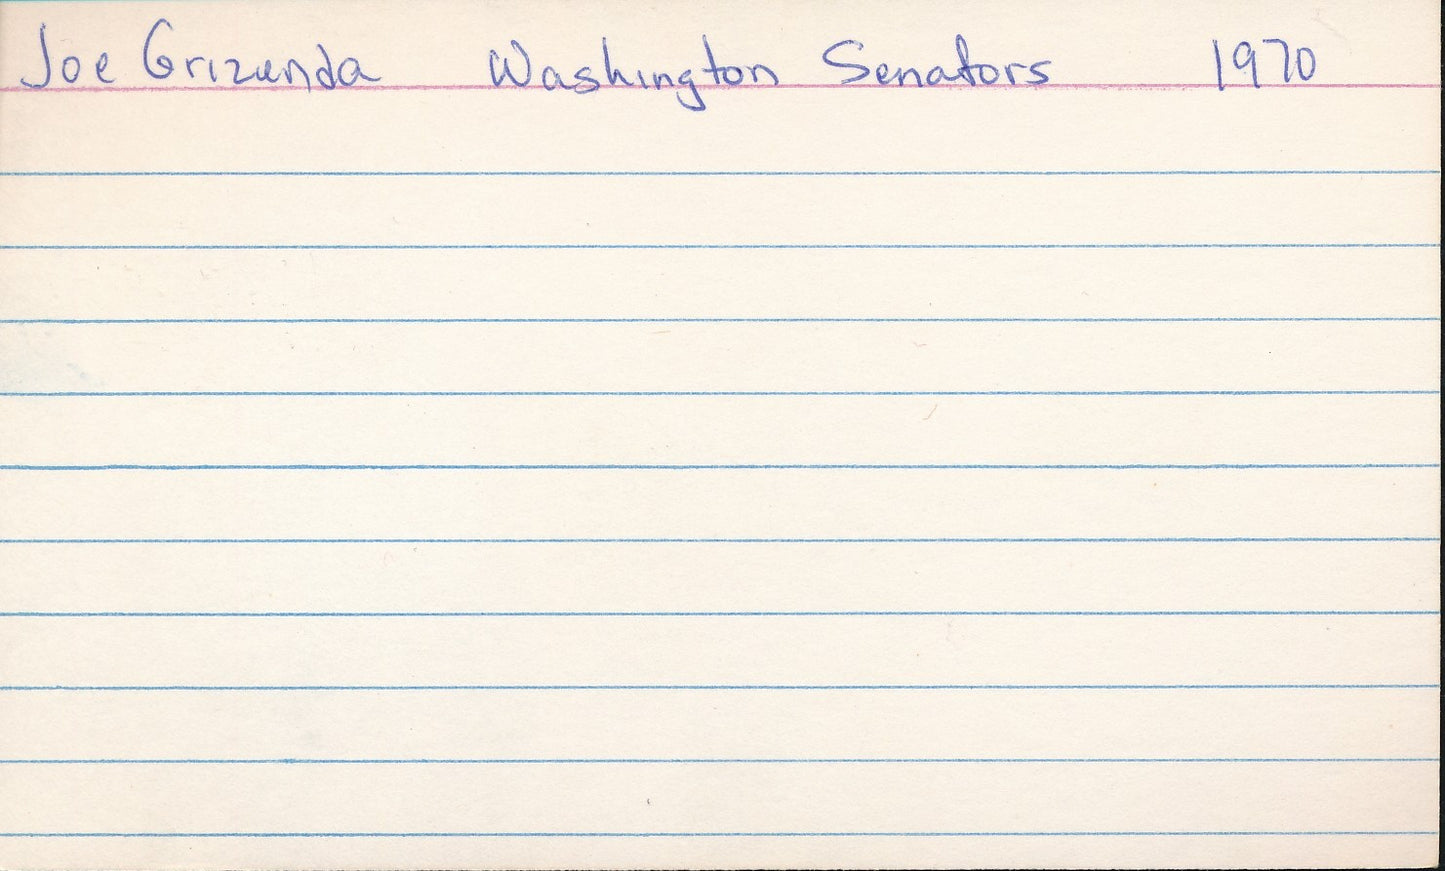 Joe Grizenda Washington Senators 1970